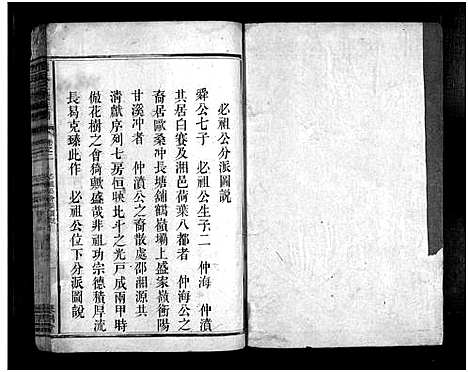 必祖公分派圖說
舜公七子　必祖公生子二　仲海　仲濆
其居白賽及湘邑荷葉八都者　仲海公之
裔居歐桑冲長塘鋪鶴嶺壩上盛家嶺衡陽
甘溪冲者　仲濆公之裔散處邵湘源共
清獻序列七房恒映比斗之光戸成兩甲時
倣花樹之會猗歟盛哉非祖功宗德積厚流
長曷克臻此作　必祖公位下分派圖說